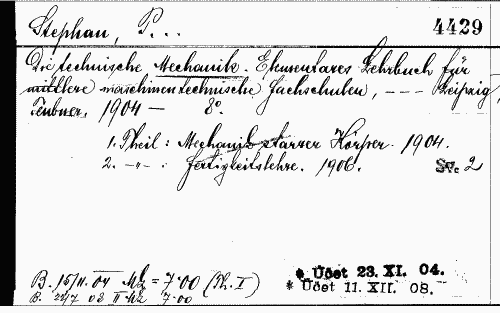 Stephan, P...
4429
Die technische Mechanik. Elementares Lehrbuch für
mittlere maschinentechnische Fachschulen, --- Leipzig,
Teubner, 1904 — 8°.
1. Theil: Mechanik starrer Körper. 1904.
2. -"- : Festigkeitslehre. 1906.
Sv. 2
B. 15/11. 04 Mk = 7·00 (Th. I)
* Účet 23. XI. 04.
B. 22/7 08 II Mk 7·00
* Účet 11. XII. 08.